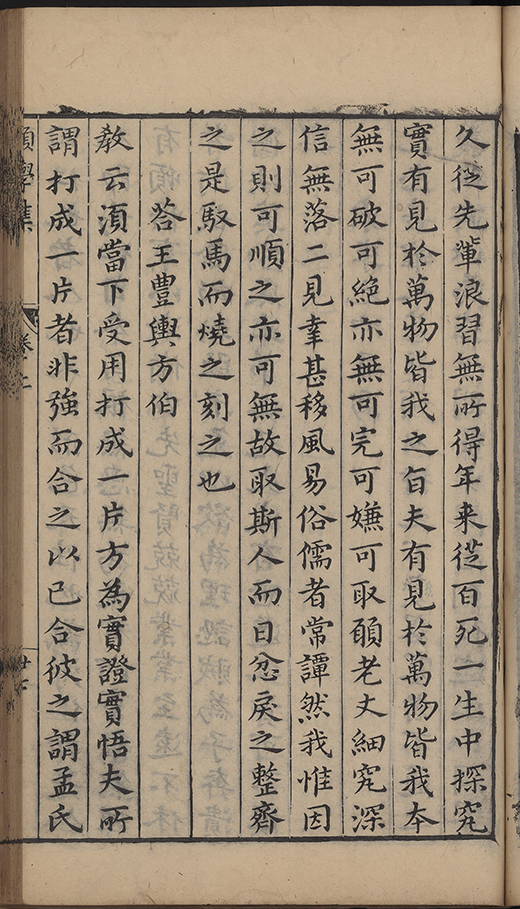 久從先輩浪習無所得年来從百死一生中探究
實有見於萬物皆我之㫖夫有見於萬物皆我本
無可破可絶亦無可完可嫌可取願老丈細究深
信無落二見幸甚移風易俗儒者常譚然我惟因
之則可順之亦可無故取斯人而日忿戾之整齊
之是馭馬而燒之刻之也
荅王豊輿方伯
教云須當下受用打成一片方為實證實悟夫所
謂打成一片者非強而合之以已合彼之謂孟氏
學集
卷
廿七